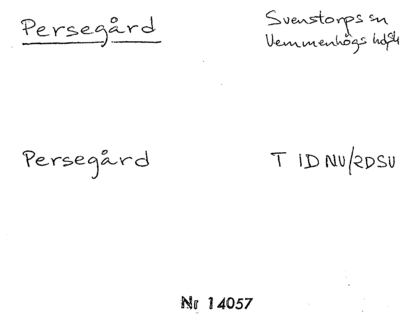 Persegård
Svenstorps sn
Vemmenhögs hd, Sk
Persegård
T 1D NV/2D SV
Nr 14057